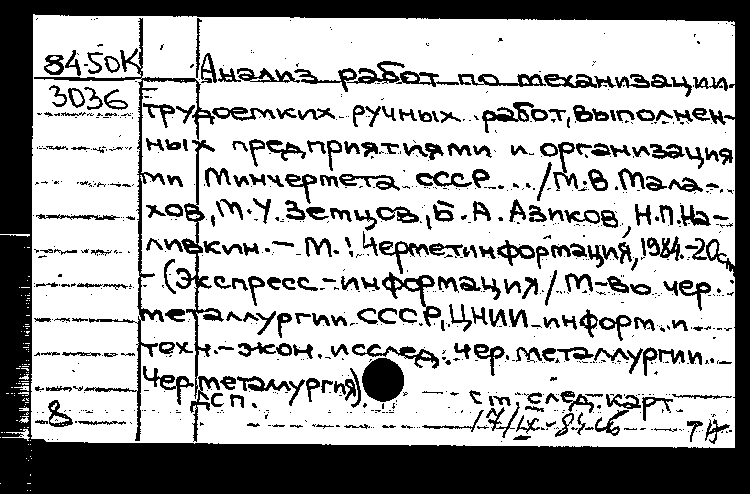 84-50К Анализ работ по механизации
3036 трудоемких ручных работ, выполнен-
ных предприятиями и организация
ми Минчермета СССР .../М.В.Мала-
хов, М.У.Земцов, Б.А.Азиков, Н.П.На-
ливкин.- М.: Черметинформация, 1984.-20с,
- (Экспресс-информация/ М-во чер.
металлургии СССР, ЦНИИ информ. и
техн.-экон. исслед. чер. металлургии.
Чер металлургия).
ДСП. ст. след. карт.
8 17/IX-84 сб ТА